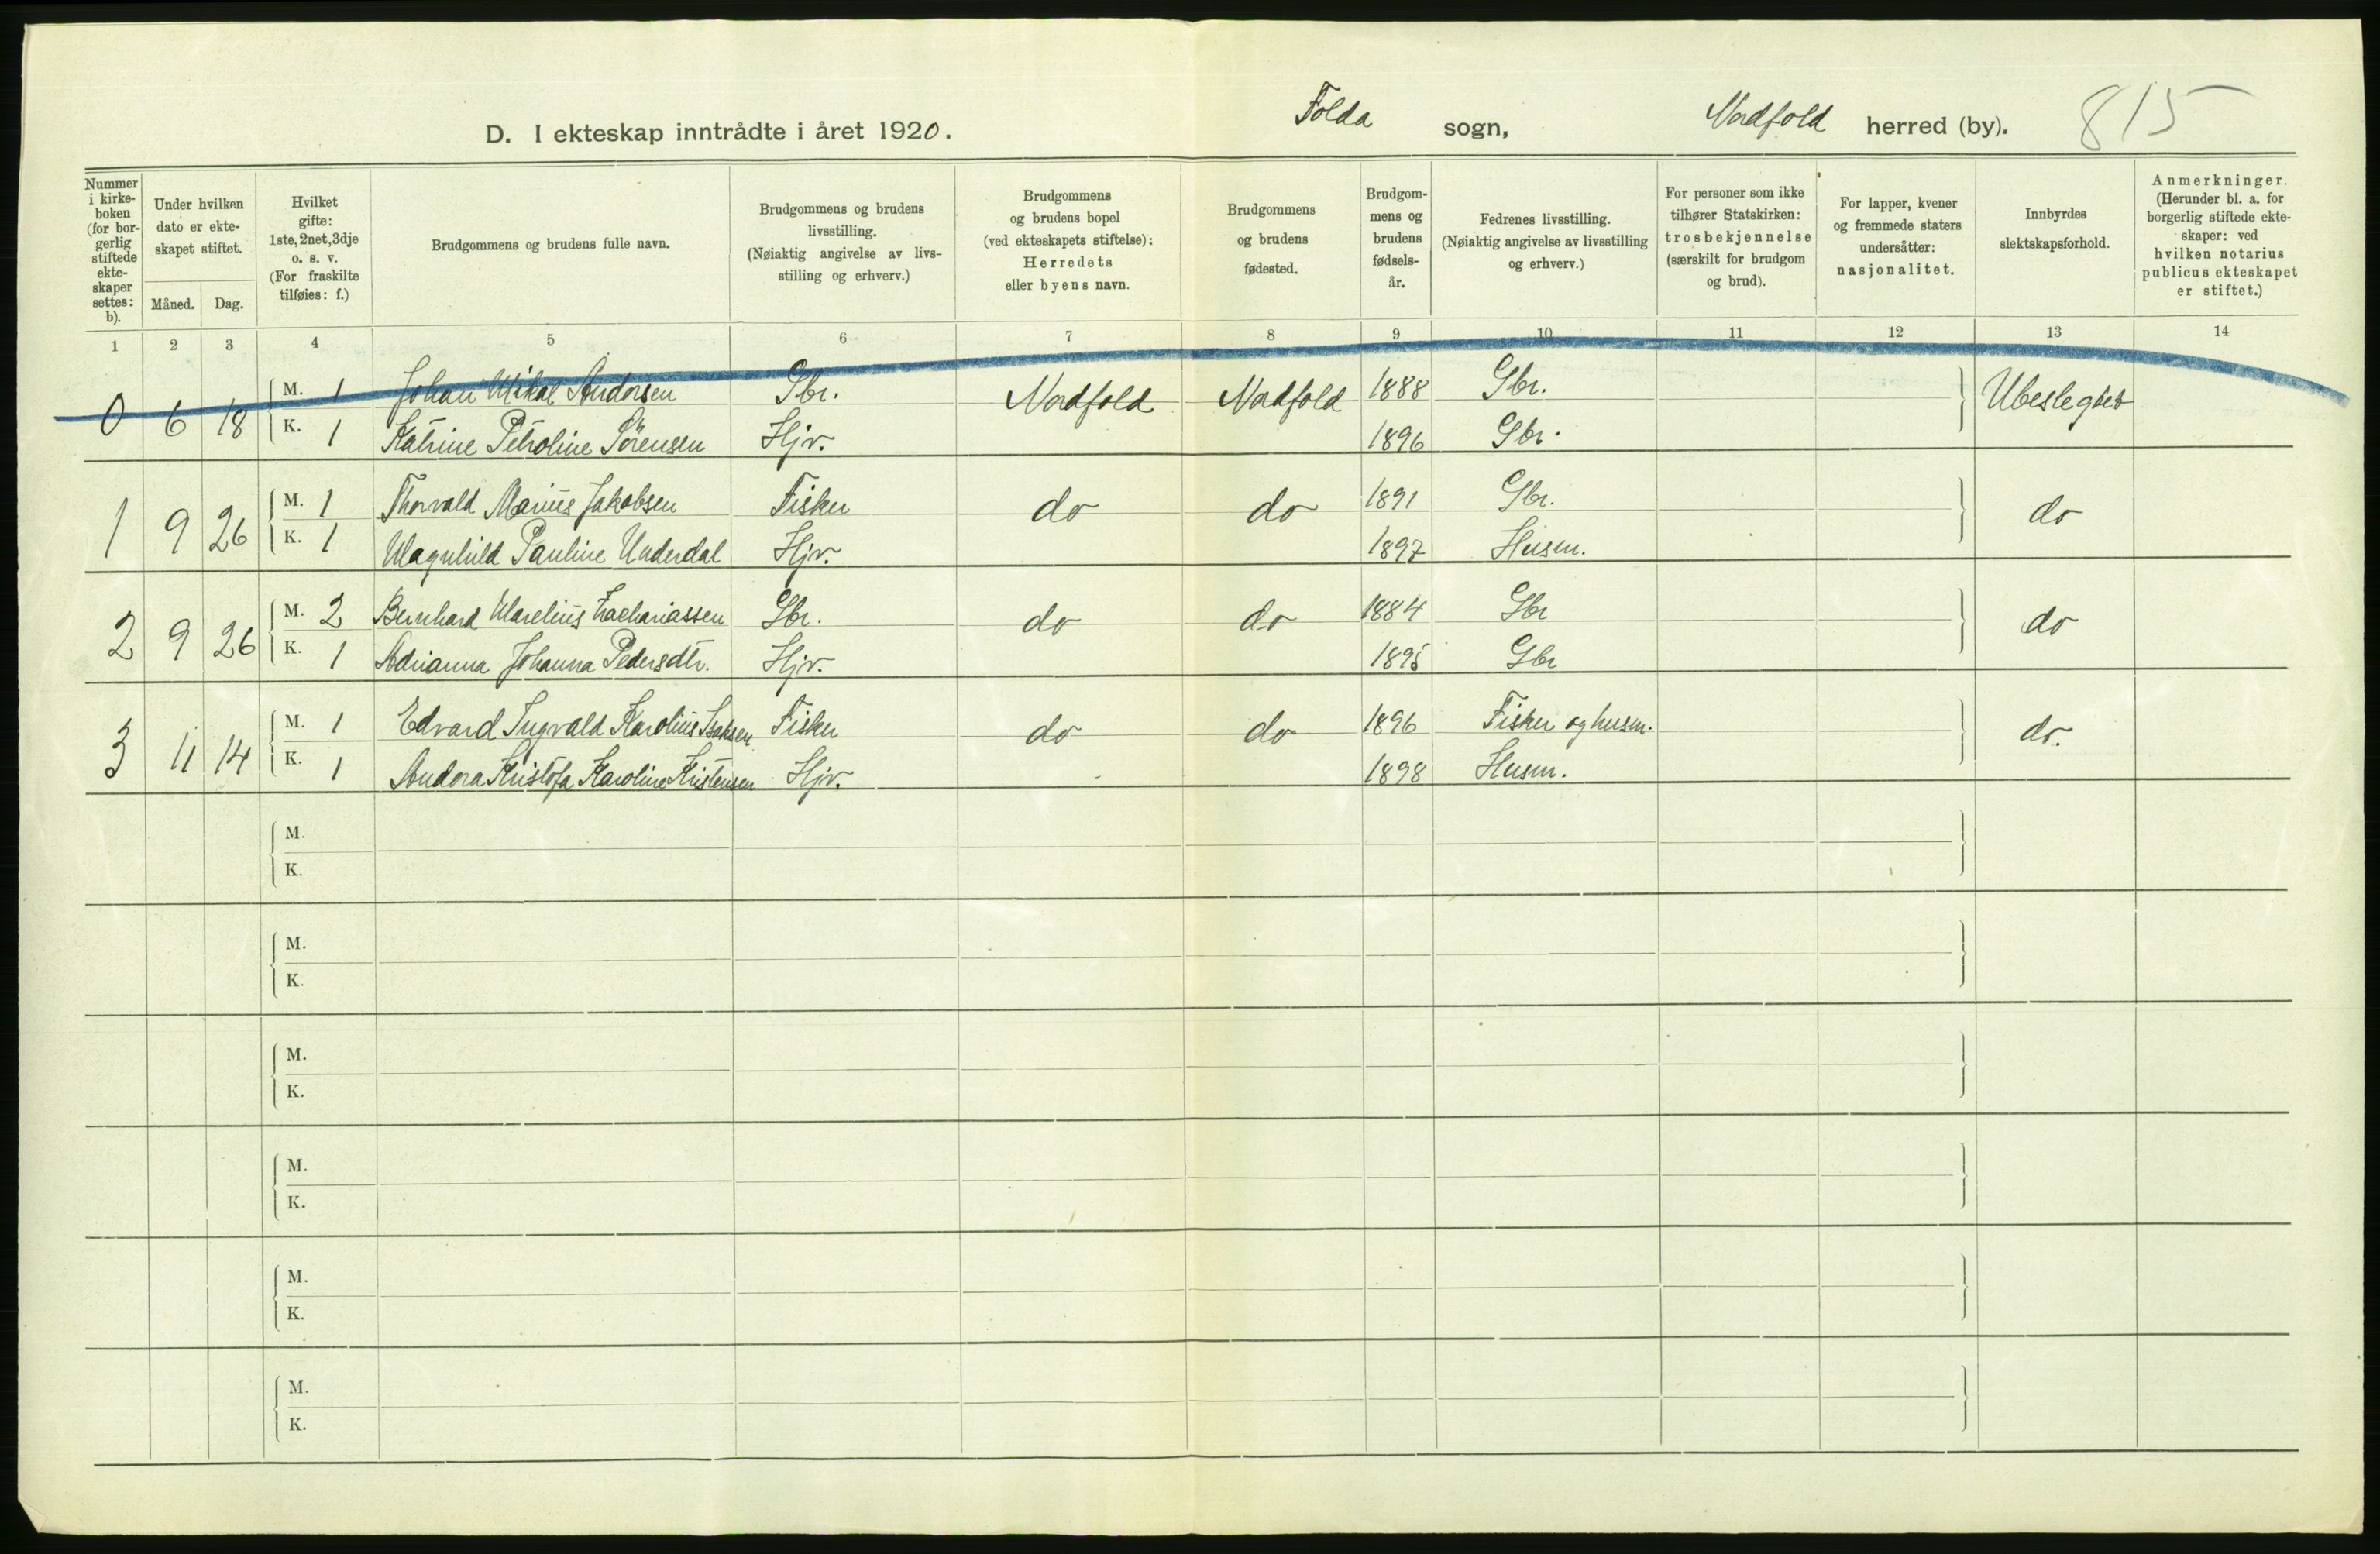 D. I ekteskap inntrådte i året 1920. Folda sogn, Nordfold herred (by). 815
Nummer i kirke-boken (for bor-gerlig stiftede ekte-skaper settes: b).
Under hvilken dato er ekte-skapet stiftet.
Måned. Dag.
Hvilket gifte: 1ste, 2net, 3dje o. s. v. (For fraskilte tilføies: f.)
Brudgommens og brudens fulle navn.
Brudgommens og brudens livsstilling. (Nøiaktig angivelse av livs-stilling og erhverv.)
Brudgommens og brudens bopel (ved ekteskapets stiftelse): Herredets eller byens navn.
Brudgommens og brudens fødested.
Brudgom-mens og brudens fødsels-år.
Fedrenes livsstilling. (Nøiaktig angivelse av livsstilling og erhverv.)
For personer som ikke tilhører Statskirken: trosbekjennelse (særskilt for brudgom og brud).
For lapper, kvener og fremmede staters undersåtter: nasjonalitet.
Innbyrdes slektskapsforhold.
Anmerkninger. (Herunder bl. a. for borgerlig stiftede ekte-skaper: ved hvilken notarius publicus ekteskapet er stiftet.)
1 2 3 4 5 6 7 8 9 10 11 12 13 14
0 6 18 M. 1 Johan Mikal Andersen Gbr. Nordfold Nordfold 1888 Gbr. Ubeslegtet
K. 1 Katrine Petroline Sörensen Hjv. 1896 Gbr.
1 9 26 M. 1 Thorvald Marius Jakobsen Fisker do do 1891 Gbr. do
K. 1 Magnhild Pauline Underdal Hjv. 1897 Husm.
2 9 26 M. 2 Bernhard Marelius Zachariassen Gbr. do do 1884 Gbr do
K. 1 Adrianna Johanna Pedersdtr. Hjv. 1895 Gbr
3 11 14 M. 1 Edvard Ingvald Karolius Isaksen Fisker do do 1896 Fisker og husm. do.
K. 1 Andora Kristofa Karoline Kristensen Hjv. 1898 Husm.
M.
K.
M.
K.
M.
K.
M.
K.
M.
K.
M.
K.